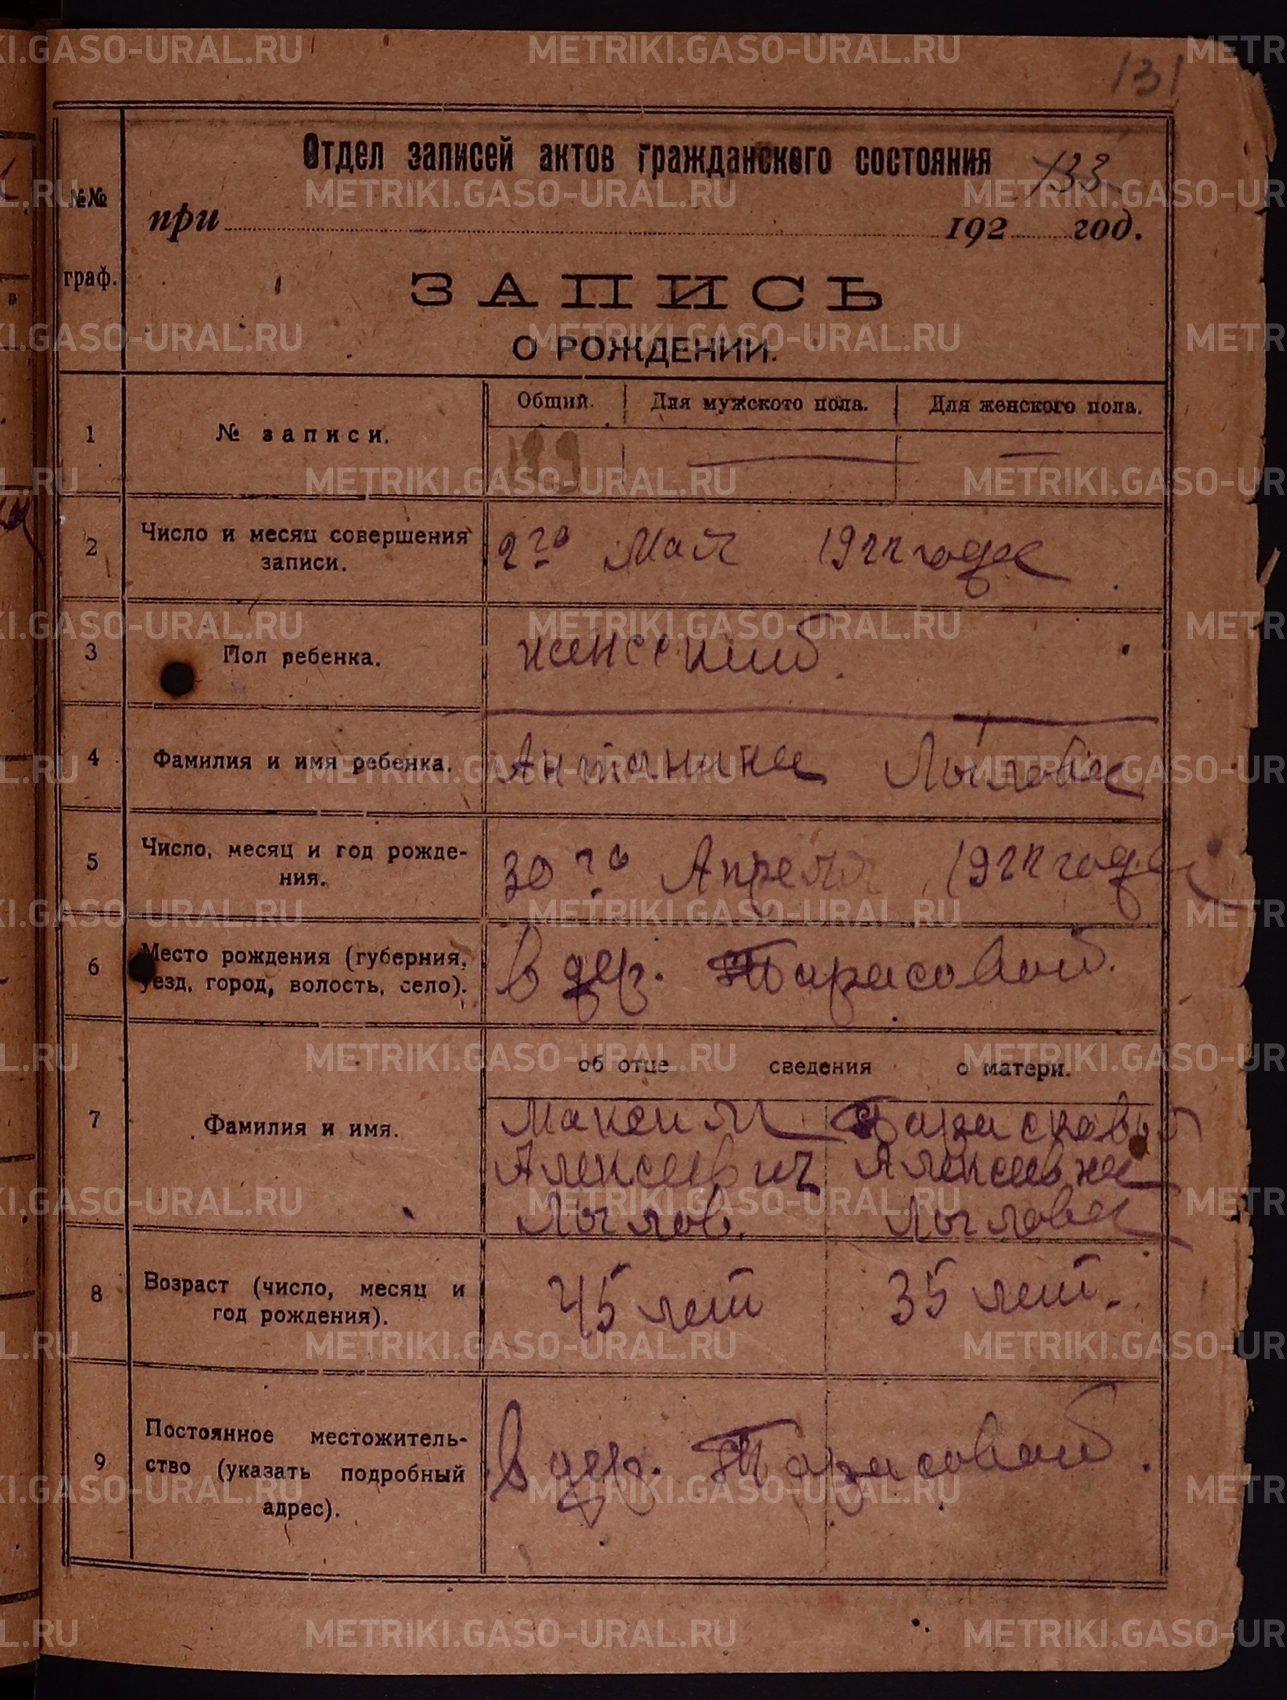 131
Отдел записей актов гражданского состояния
133
№№ граф.
при 192 год.
ЗАПИСЬ
О РОЖДЕНИИ.
Общий. Для мужского пола. Для женского пола.
1 № записи. 199 — —
2 Число и месяц совершения записи. 2го Мая 1922 года
3 Пол ребенка. женский.
4 Фамилия и имя ребенка. Антанина Лылова
5 Число, месяц и год рождения. 30го Апреля 1922 года
6 Место рождения (губерния, уезд, город, волость, село). в дер. Тарасовой.
об отце сведения о матери.
7 Фамилия и имя.
Максим Парасковья
Алексеевич Алексеевна
Лылов. Лылова
8 Возраст (число, месяц и год рождения). 45 лет 35 лет.
9 Постоянное местожительство (указать подробный адрес). в дер. Тарасовой.
METRIKI.GASO-URAL.RU